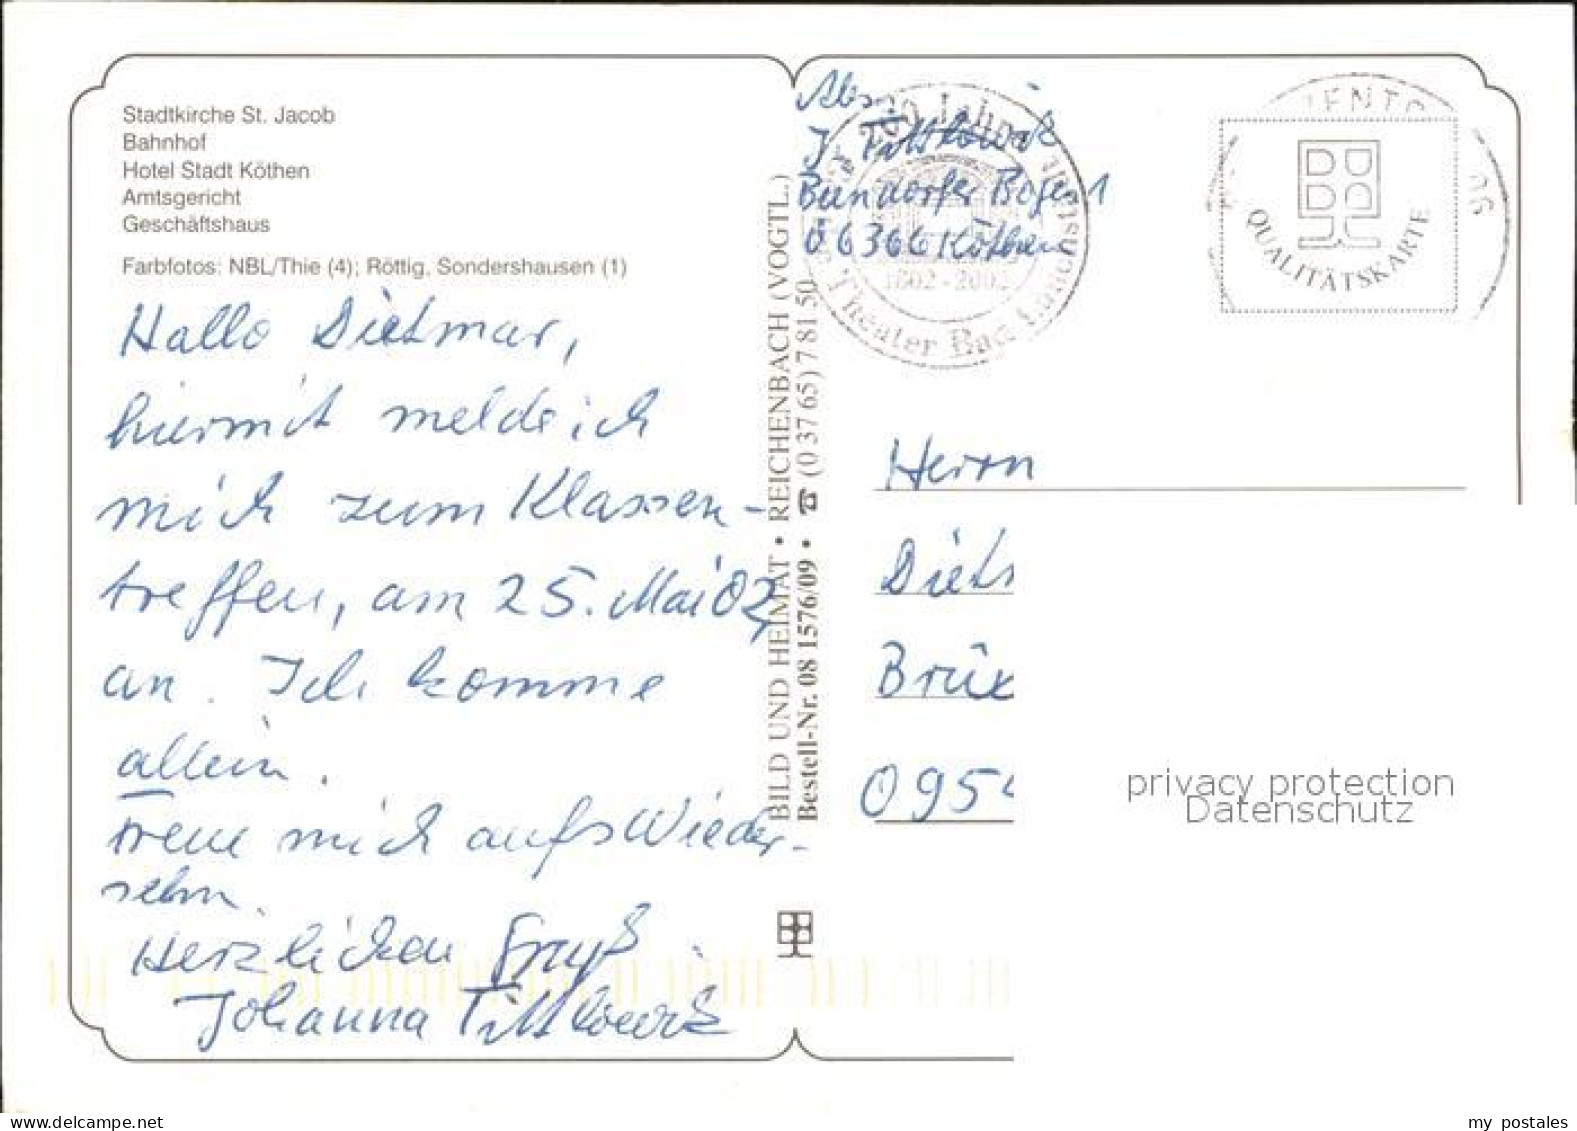 Stadtkirche St. Jacob
Bahnhof
Hotel Stadt Köthen
Amtsgericht
Geschäftshaus
Farbfotos: NBL/Thie (4); Röttig, Sondershausen (1)
Hallo Dietmar,
hiermit melde ich
mich zum Klassen-
treffen, am 25. Mai 02,
an. Ich komme
allein.
Freue mich aufs Wieder-
sehn.
Herzlichen Gruß
Johanna
BILD UND HEIMAT • REICHENBACH (VOGTL.)
Bestell-Nr. 08 1576/09 • ☎ (0 37 65) 7 81 50
Abs.
J.
Bogen 1
06366 Köthen
200 Jahre
1802 - 2002
Theater Bad Lauchstädt
QUALITÄTSKARTE
06
Herrn
Diet
Brüx
095
privacy protection
Datenschutz
my postales